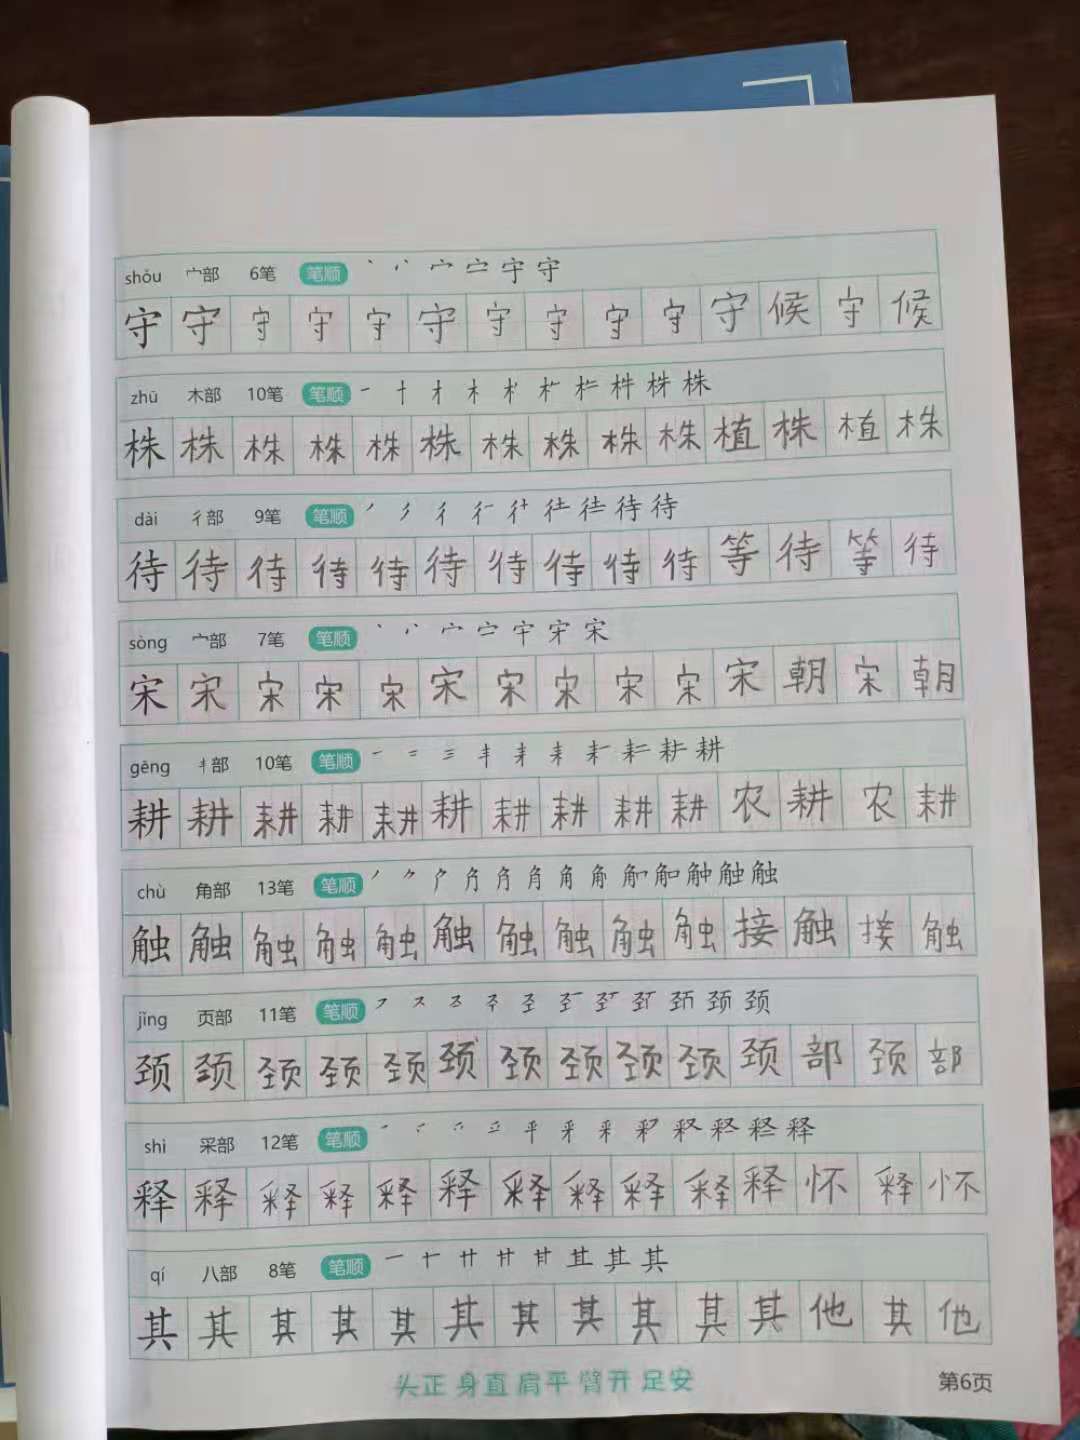 shǒu 宀部 6笔 笔顺 丶 丷 宀 宁 守 守
守 守 守 守 守 守 守 守 守 守 守 候 守 候
zhū 木部 10笔 笔顺 一 十 才 木 株 株
株 株 株 株 株 株 株 株 株 株 植 株 植 株
dài 彳部 9笔 笔顺 丿 彳 待 待
待 待 待 待 待 待 待 待 待 待 等 待 等 待
sòng 宀部 7笔 笔顺 丶 宀 宋
宋 宋 宋 宋 宋 宋 宋 宋 宋 宋 宋 朝 宋 朝
gēng 耒部 10笔 笔顺 一 二 三 丰 耒 耕
耕 耕 耕 耕 耕 耕 耕 耕 耕 耕 农 耕 农 耕
chù 角部 13笔 笔顺 丿 角 触 触
触 触 触 触 触 触 触 触 触 触 接 触 接 触
jǐng 页部 11笔 笔顺 ㇇ ス 颈 颈
颈 颈 颈 颈 颈 颈 颈 颈 颈 颈 颈 部 颈 部
shì 采部 12笔 笔顺 释
释 释 释 释 释 释 释 释 释 释 释 怀 释 怀
qí 八部 8笔 笔顺 一 十 廿 甘 其 其
其 其 其 其 其 其 其 其 其 其 其 他 其 他
头正 身直 肩平 臂开 足安 第6页